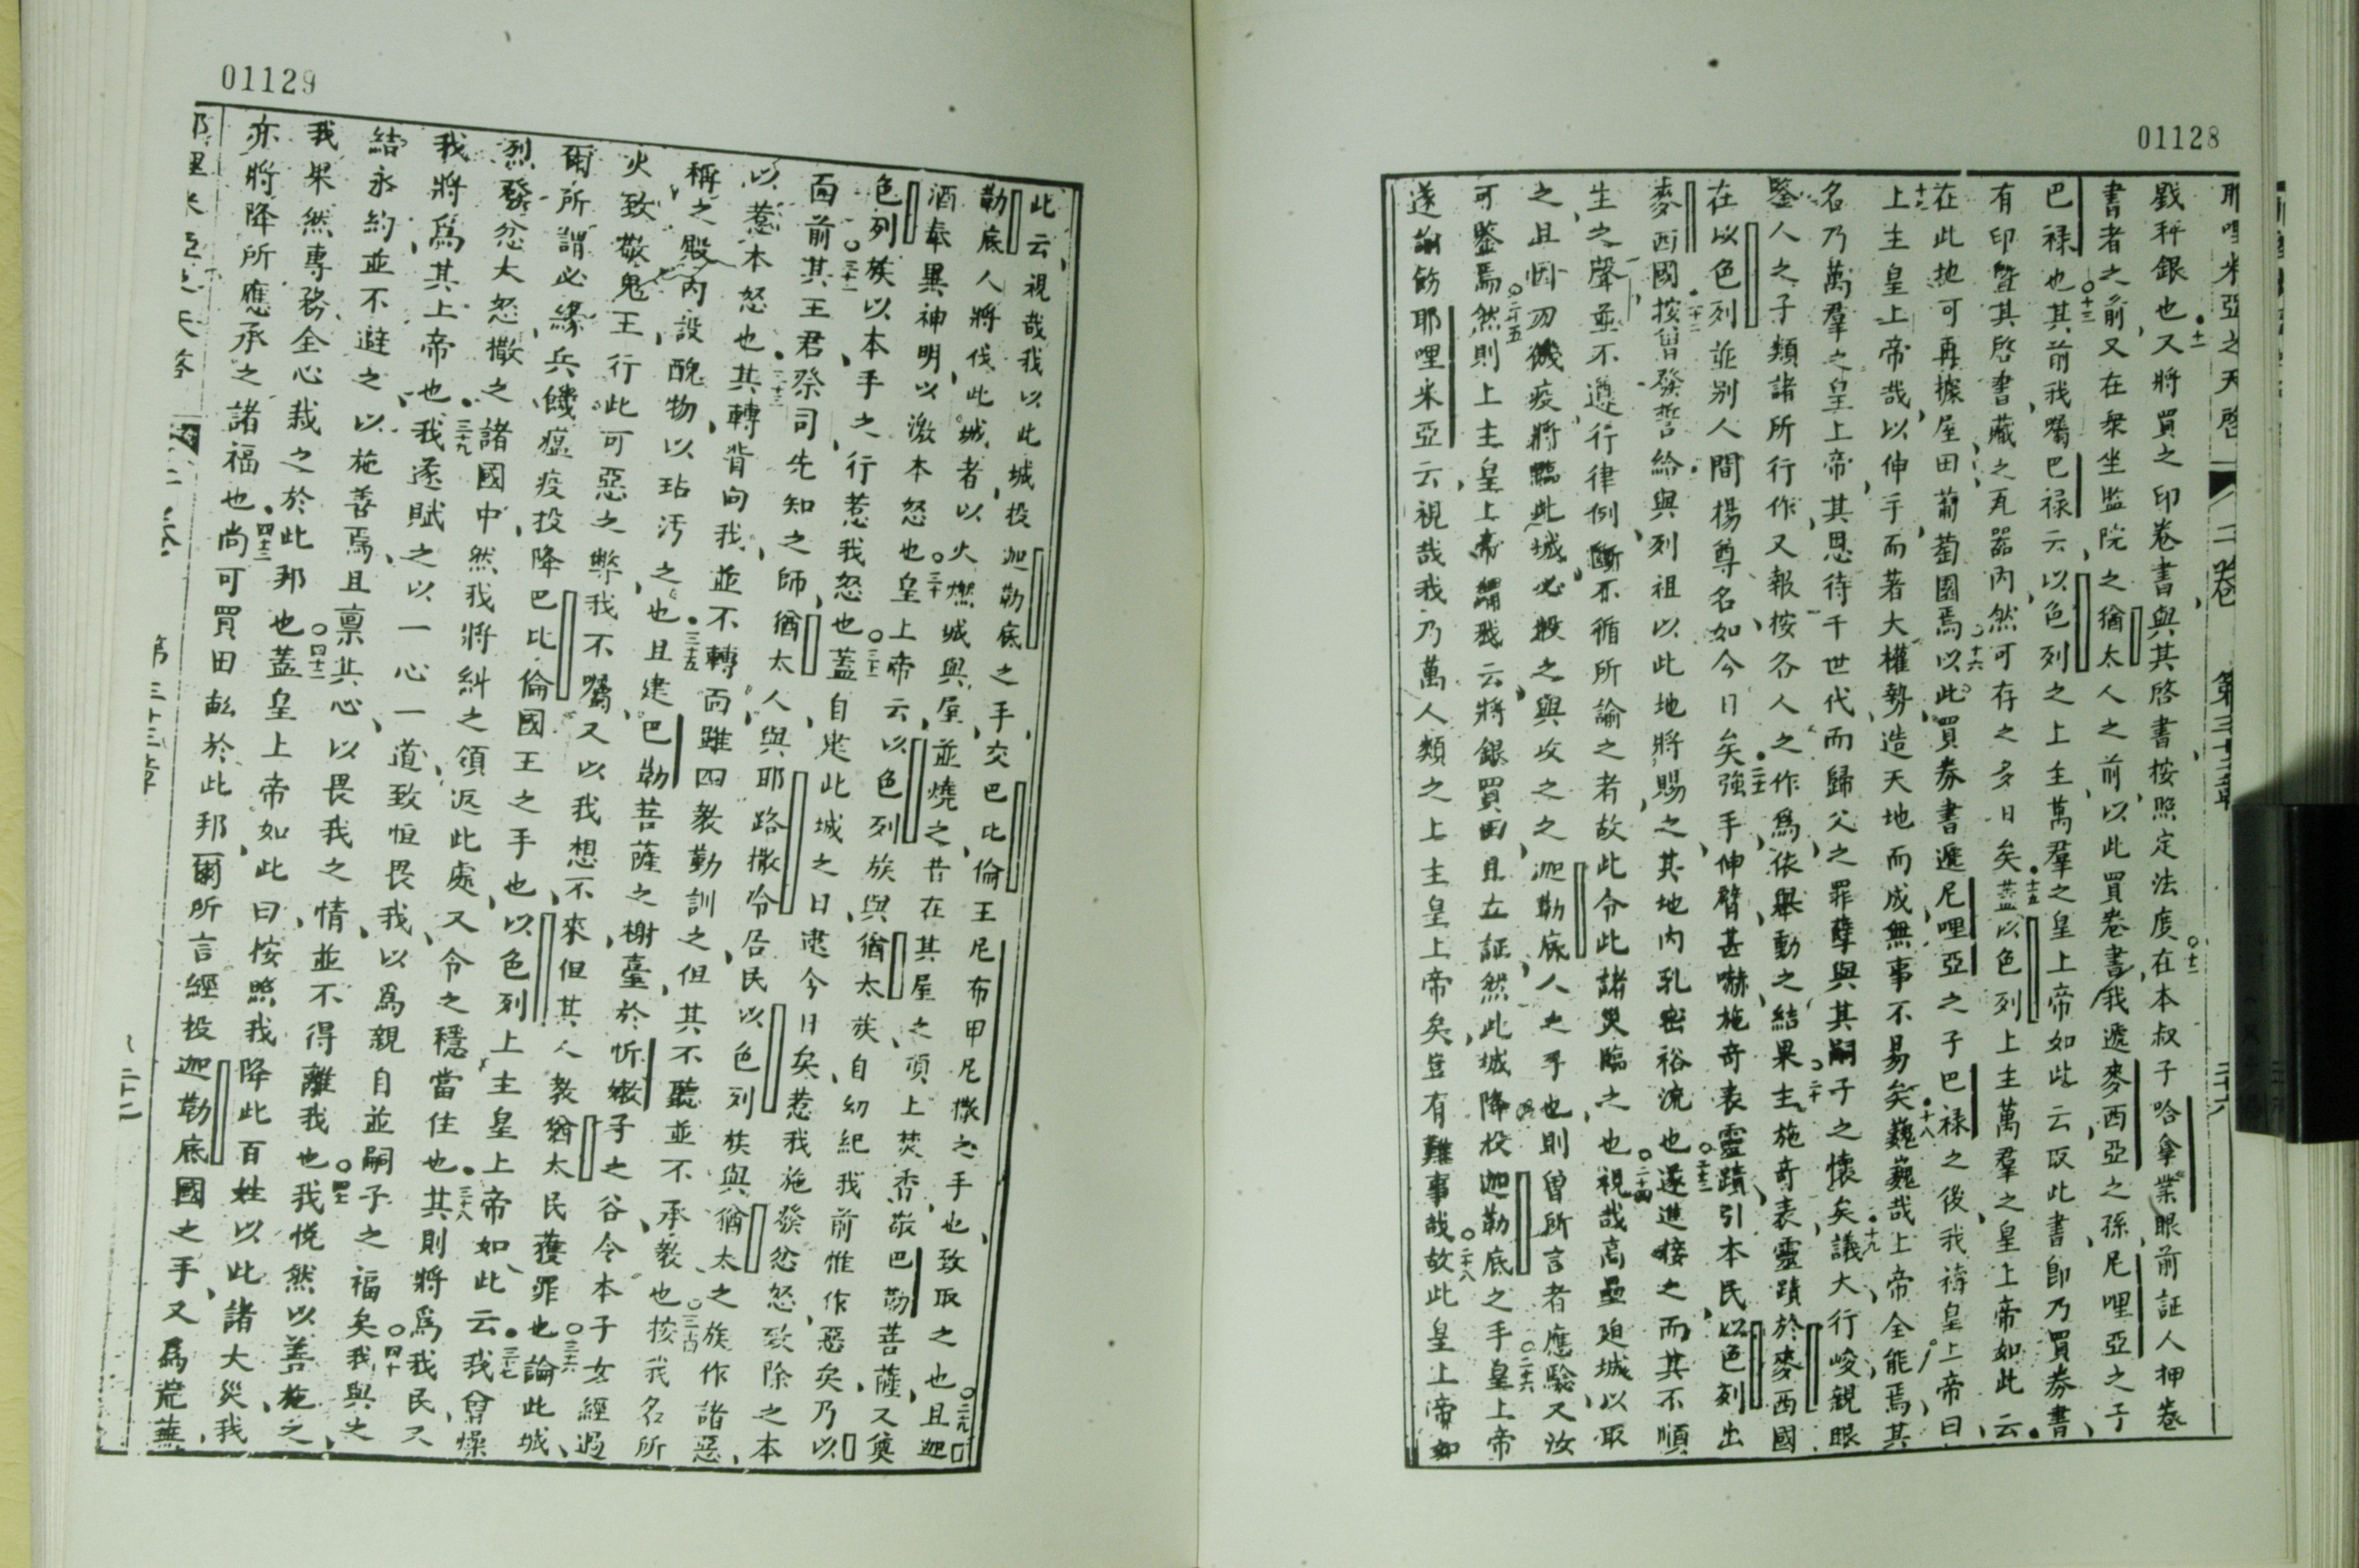 01128
耶哩米亞之天啓 二卷 第三十二章 二十六
戥秤銀也又將買之印卷書與其啓書按照定法度在本叔子哈拿業眼前証人押卷
書者之前又在衆坐監院之猶太人之前以此買卷書我遞麥西亞之孫尼哩亞之子
巴祿也其前我囑巴祿云以色列之上主萬羣之皇上帝如此云取此書即乃買券書
有印曁其啓書藏之瓦器內然可存之多日矣蓋以色列上主萬羣之皇上帝如此云
在此地可再據屋田葡萄園焉以此買券書遞尼哩亞之子巴祿之後我禱皇上帝曰
上主皇上帝哉以伸手而著大權勢造天地而成無事不易矣巍巍哉上帝全能焉其
名乃萬羣之皇上帝其恩待千世代而歸父之罪孽與其嗣子之懷矣議大行峻親眼
鑒人之子類諸所行作又報按各人之作爲依舉動之結果主施奇表靈蹟於麥西國
在以色列並別人間揚尊名如今日矣強手伸臂甚嚇施奇表靈蹟引本民以色列出
麥西國按曾發誓給與列祖以此地將賜之其地內乳密裕流也遂進接之而其不順
生之聲並不遵行律例斷不循所諭之者故此令此諸災臨之也視哉高壘迫城以取
之且因刀饑疫將臨此城必投之與攻之之迦勒底人之手也則曾所言者應驗又汝
可鑒焉然則上主皇上帝謂我云將銀買田且立証然此城降投迦勒底之手皇上帝
遂諭飭耶哩米亞云視哉我乃萬人類之上主皇上帝矣豈有難事哉故此皇上帝如
01129
此云視哉我以此城投迦勒底之手交巴比倫王尼布甲尼撒之手也致取之也且迦
勒底人將伐此城者以火燃城與屋並燒之昔在其屋之頂上焚香敬巴勒菩薩又奠
酒奉異神明以激本怒也皇上帝云以色列族與猶太族自幼紀我前惟作惡矣乃以
色列族以本手之行惹我怒也蓋自建此城之日逮今日矣惹我施發忿怒致除之本
面前其王君祭司先知之師猶太人與耶路撒冷居民以色列族與猶太之族作諸惡
以惹本怒也其轉背向我並不轉面雖四教勤訓之但其不聽並不承教也按我名所
稱之殿內設醜物以玷污之也且建巴勒菩薩之榭臺於忻嫩子之谷令本子女經過
火致敬鬼王行此可惡之弊我不囑又以我想不來但其人教猶太民獲罪也論此城
爾所謂必緣兵饑瘟疫投降巴比倫國王之手也以色列上主皇上帝如此云我曾燥
烈發忿大怒撒之諸國中然我將糾之領返此處又令之穩當住也其則將爲我民又
我將爲其上帝也我遂賦之以一心一道致恒畏我以爲親自並嗣子之福矣我與之
結永約並不避之以施善焉且禀其心以畏我之情並不得離我也我悅然以善施之
我果然專務全心栽之於此邦也蓋皇上帝如此曰按照我降此百姓以此諸大災我
亦將降所應承之諸福也尚可買田畝於此邦爾所言經投迦勒底國之手又爲荒蕪
耶哩米亞之天啓 二卷 第三十二章 二十七